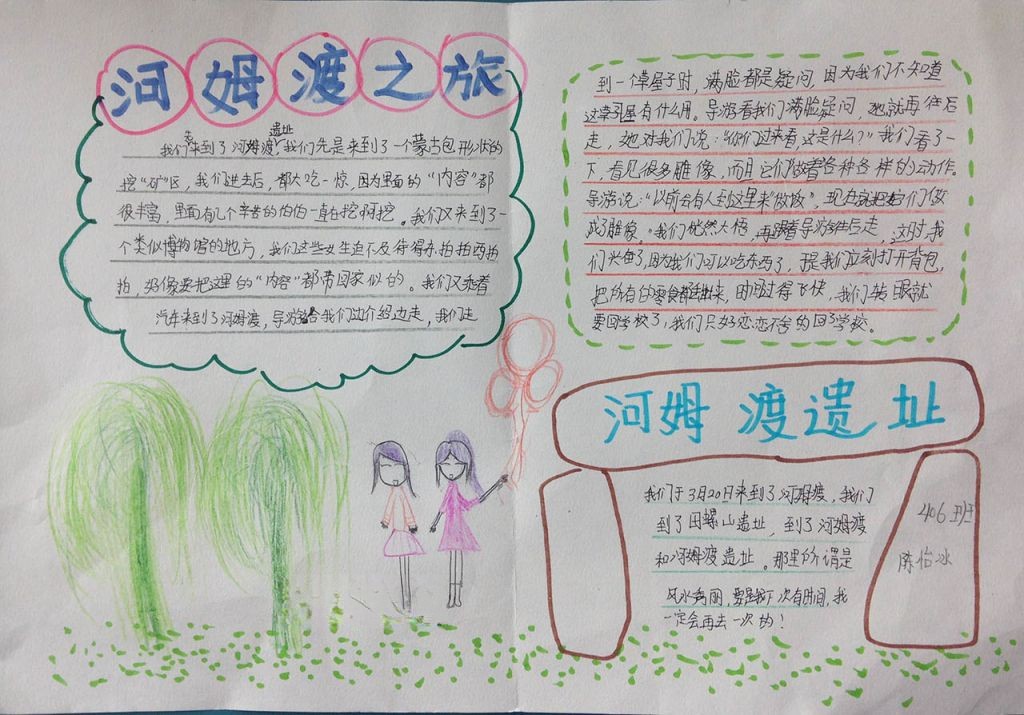 河姆渡之旅
我们来到了河姆渡遗址,我们先是来到了一个蒙古包形状的
挖“矿”区,我们进去后,都大吃一惊,因为里面的“内容”都
很丰富,里面有几个辛苦的伯伯一直在挖啊挖。我们又来到了
一个类似博物馆的地方,我们这些女生迫不及待得东拍拍西拍
拍,好像要把这里的“内容”都带回家似的。我们又乘着
汽车来到了河姆渡,导游给我们边介绍边走,我们走
到一个草屋子时,满脸都是疑问,因为我们不知道
这草屋有什么用。导游看我们满脸疑问,她就再往后
走,她对我们说:“你们过来看,这是什么?”我们看了一
下,看见很多雕像,而且它们做着各种各样的动作。
导游说:“以前会有人到这里来做饭”,现在就把它们做
成了雕像。我们恍然大悟,再跟着导游往后走,这时,我
们兴奋了,因为我们可以吃东西了,于是我们立刻打开背包,
把所有的零食都拿出来,时间过得飞快,我们转眼就
要回学校了,我们只好恋恋不舍的回了学校。
河姆渡遗址
我们于3月20日来到了河姆渡,我们
到了田螺山遗址,到了河姆渡
和河姆渡遗址。那里所谓是
风水秀丽,要是我下次有时间,我
一定会再去一次的!
406班
陈怡冰